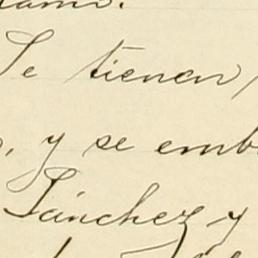 Se tienen
y se emb
Sánchez y